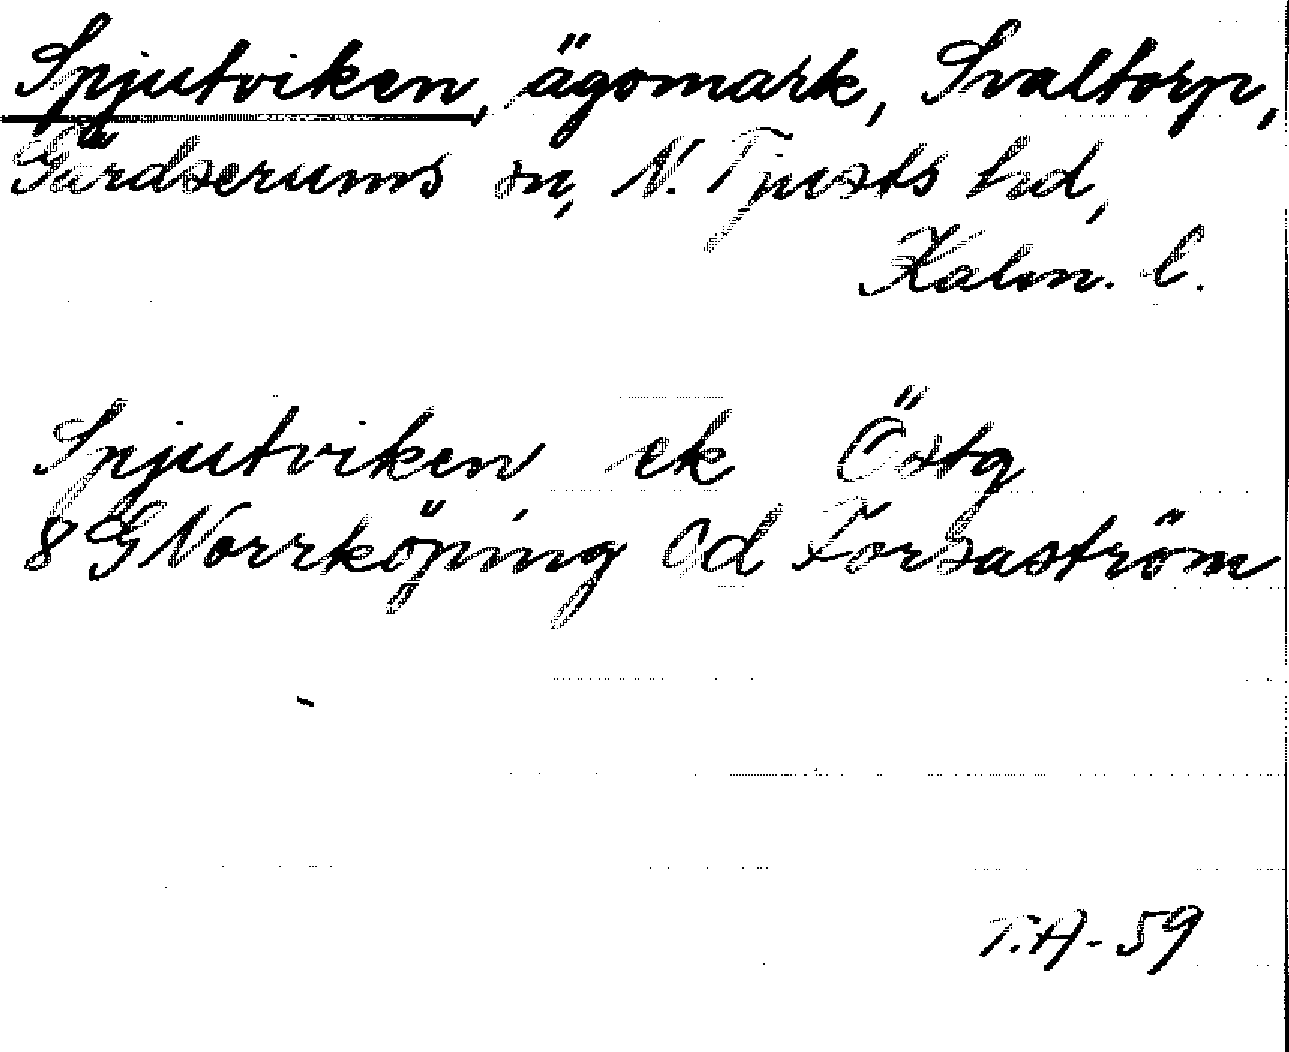 Spjutviken, ägomark, Svaltorp,
Gärdserums sn, N. Tjusts hd,
Kalm. l.
Spjutviken ek Östg
8 G Norrköping 0d Forsaström
T.A-59